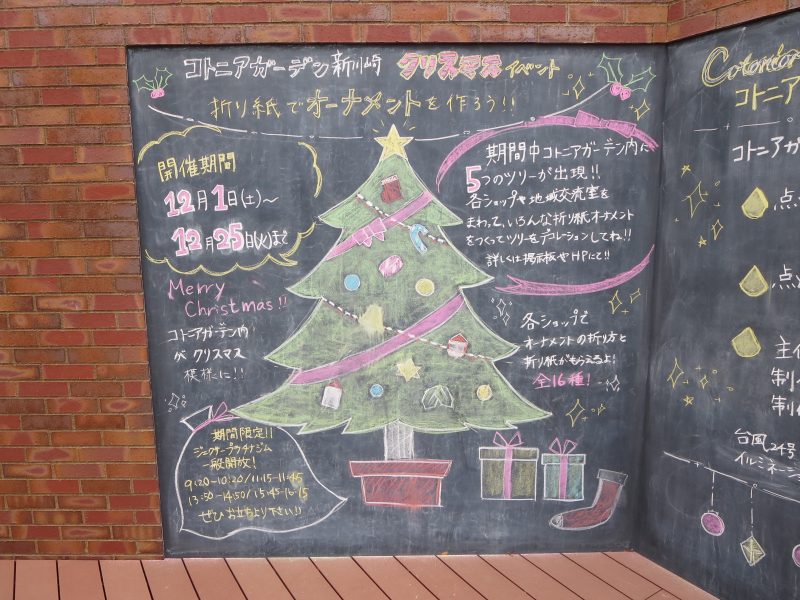 コトニアガーデン新川崎 クリスマスイベント
折り紙でオーナメントを作ろう!!
開催期間
12月1日(土)～
12月25日(火)まで
Merry
Christmas!!
コトニアガーデン内
が クリスマス
模様に!!
期間中コトニアガーデン内に
5つのツリーが出現!!
各ショップや地域交流室を
まわって、いろんな折り紙オーナメント
をつくってツリーをデコレーションしてね!!
詳しくは掲示板やHPにて!!
各ショップで
オーナメントの折り方と
折り紙がもらえるよ!
全16種!
期間限定!!
ジェクサープラチナジム
一般開放!
9:20-10:20/11:15-11:45
13:50-14:50/15:45-16:15
ぜひお立ちより下さい!!
コトニア
コトニアガ
点
点
主
制
制
台風24号
イルミネー